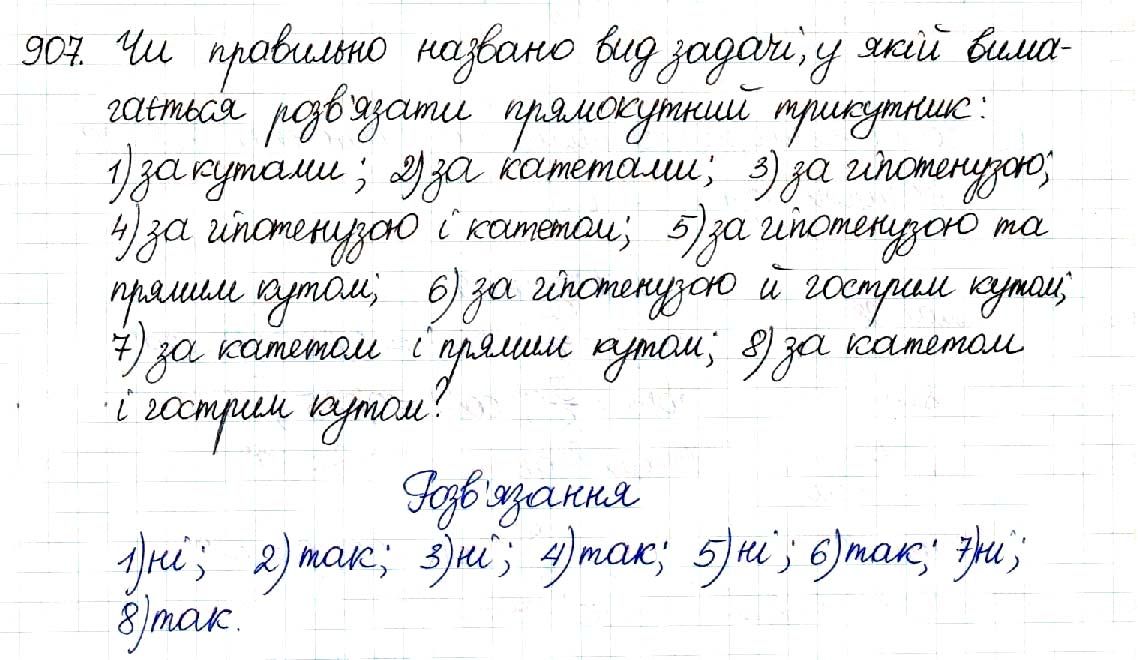 907. Чи правильно названо вид задачі, у якій вима-
гається розв'язати прямокутний трикутник:
1) за кутами; 2) за катетами; 3) за гіпотенузою;
4) за гіпотенузою і катетом; 5) за гіпотенузою та
прямим кутом; 6) за гіпотенузою й гострим кутом;
7) за катетом і прямим кутом; 8) за катетом
і гострим кутом?
Розв'язання
1) ні; 2) так; 3) ні; 4) так; 5) ні; 6) так; 7) ні;
8) так.